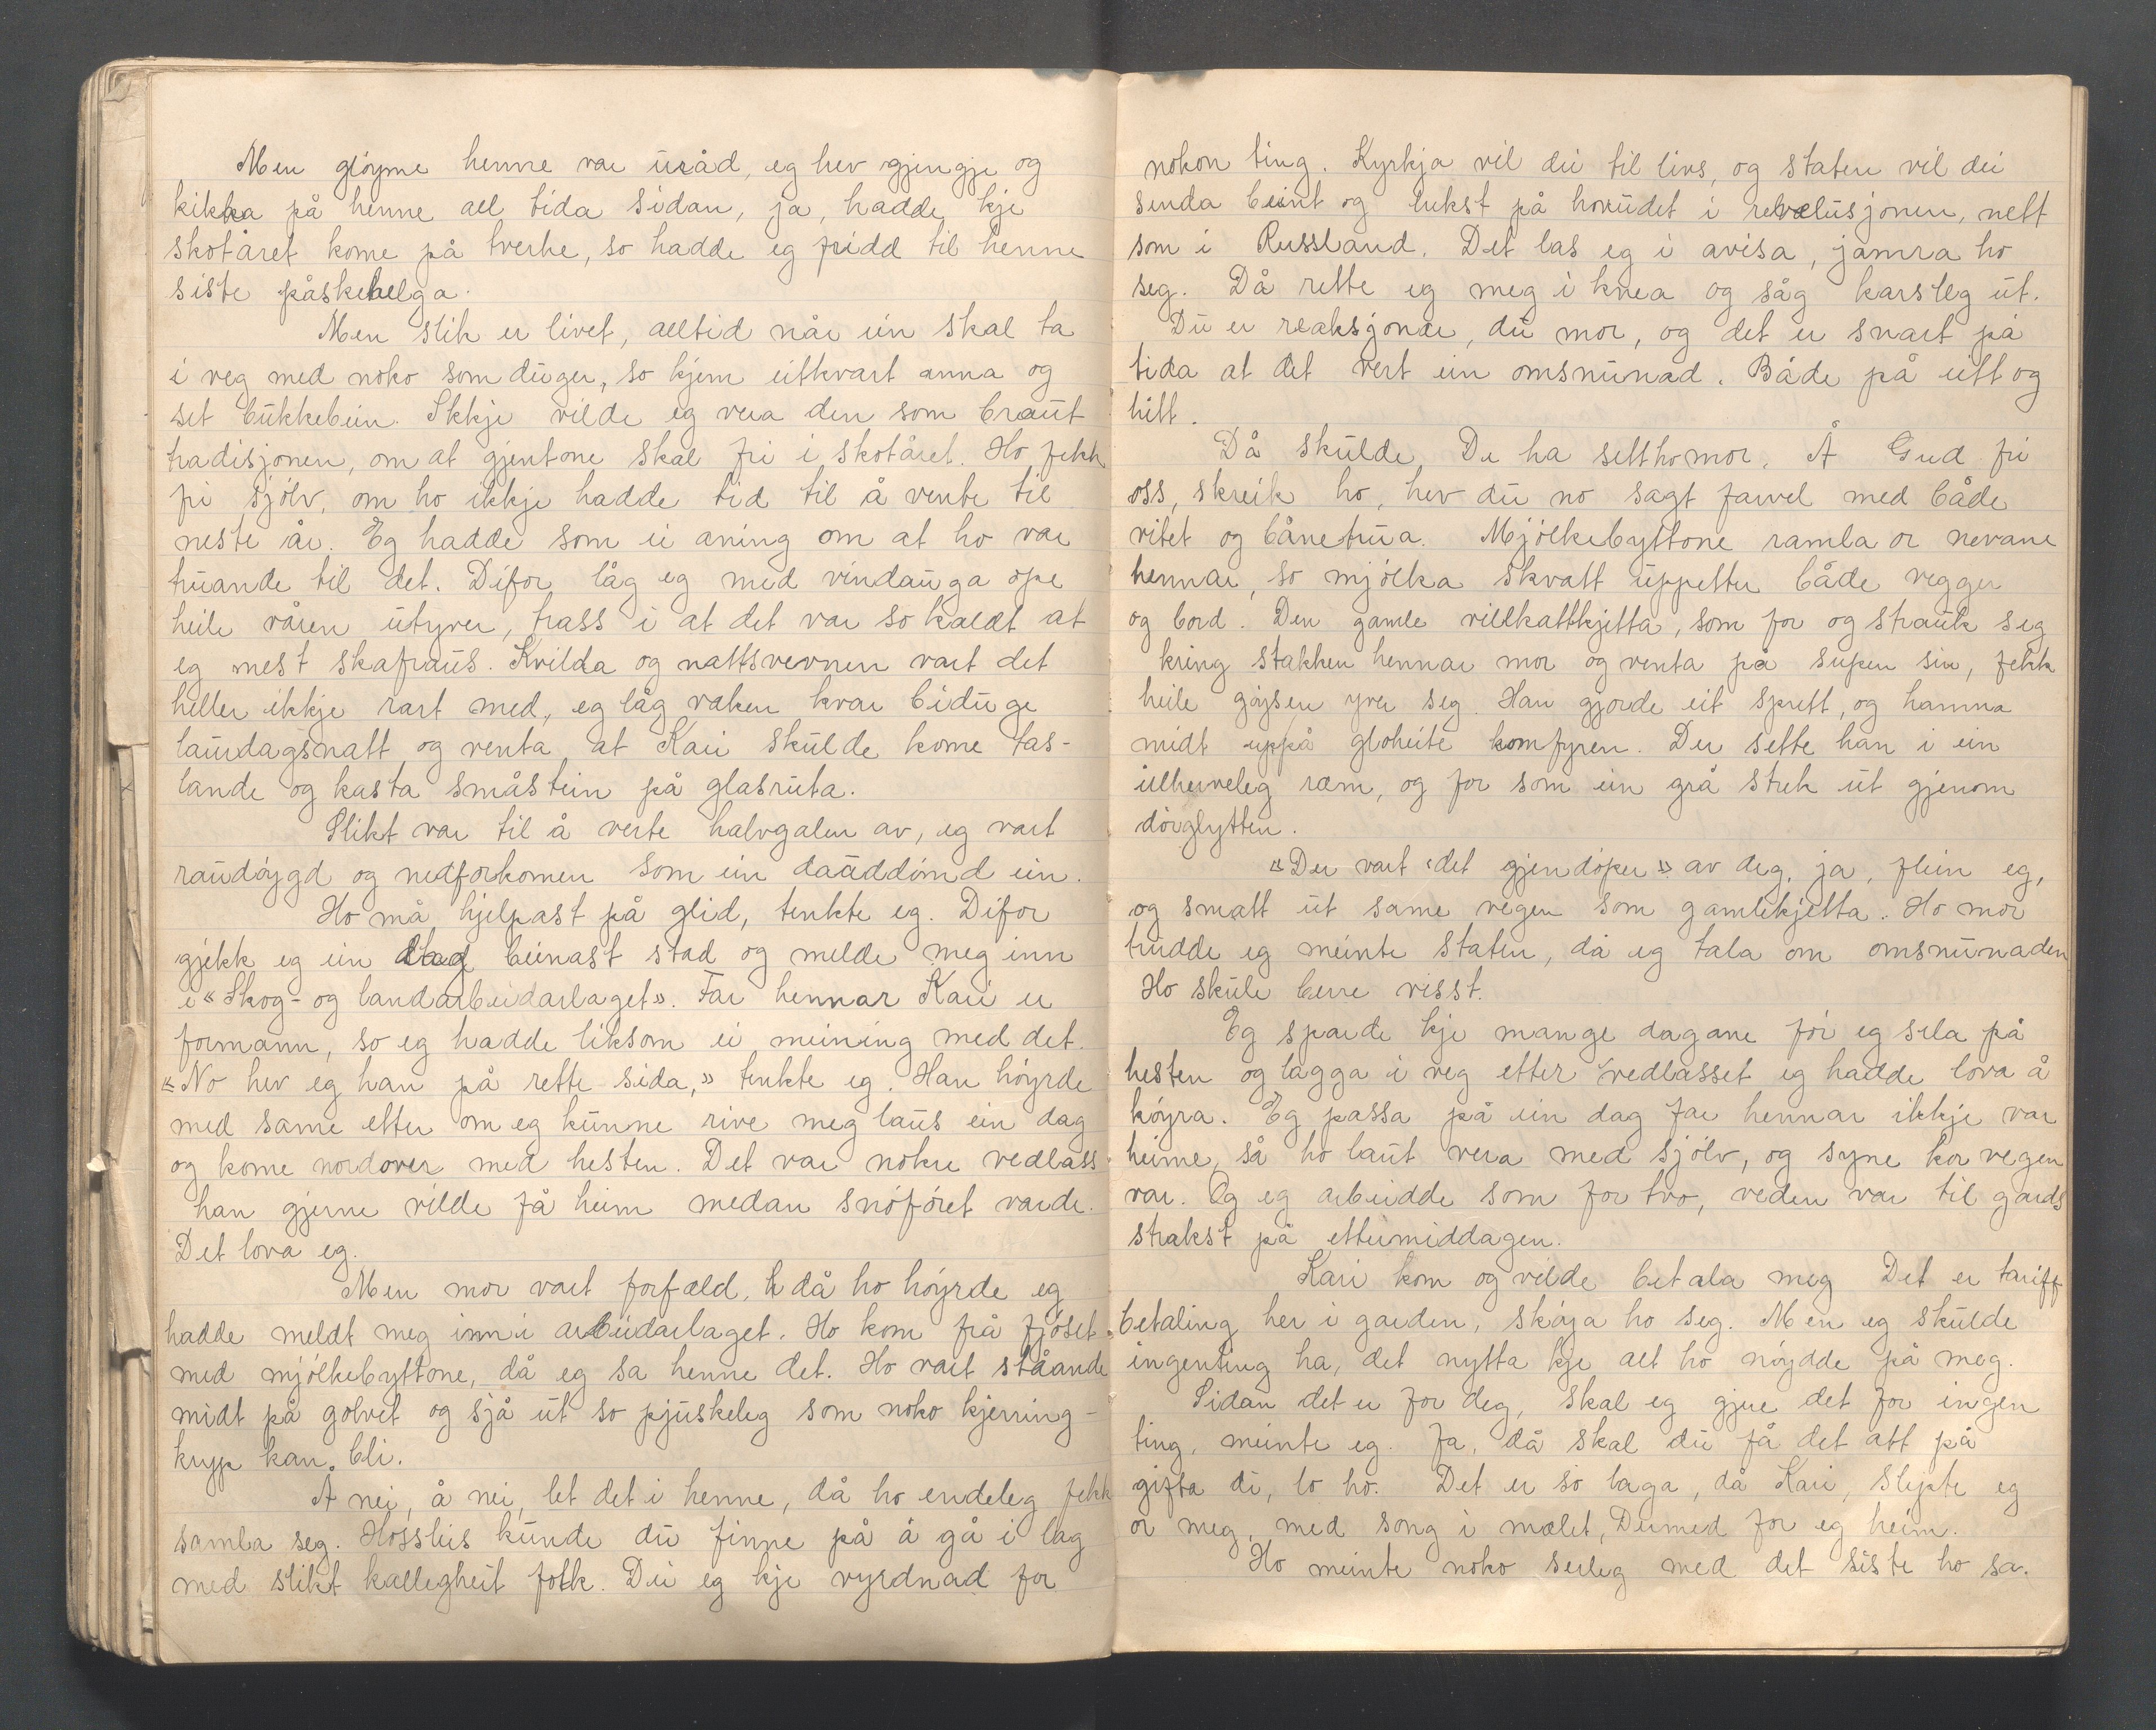 Men gløyme henne var uråd, eg hev gjengje og
kikka på henne all tida sidan, ja, hadde kje
skotåret kome på tverke, so hadde eg fridd til henne
siste påskehelga.
Men slik er livet, alltid når ein skal ta
i veg med noko som duger, so kjem eitkvart anna og
set bukkebein. Ikkje vilde eg vera den som braut
tradisjonen, om at gjentone skal fri i skotåret. Ho fekk
fri sjølv, om ho ikkje hadde tid til å vente til
neste år. Eg hadde som ei aning om at ho var
truande til det. Difor låg eg med vindauga ope
heile våren utyver, trass i at det var so kaldt at
eg mest skafraus. Kvilda og nattsvevnen vart det
heller ikkje rart med, eg låg vaken kvar bidige
laurdagsnatt og venta at Kari skulde kome tas-
lande og kasta småstein på glasruta.
Slikt var til å verte halvgalen av, eg vart
raudøygd og nedforkomen som ein daaddømd ein.
Ho må hjelpast på glid, tenkte eg. Difor
gjekk eg ein dag beinast stad og melde meg inn
i "Skog- og landarbeidarlaget". Far hennar Kari er
formann, so eg hadde liksom ei meining med det.
"No hev eg han på rette sida," tenkte eg. Han høyrde
med same etter om eg kunne rive meg laus ein dag
og kome nordover med hesten. Det var nokre vedlass
han gjerne vilde få heim medan snøføret varde.
Det lova eg.
Men mor vart forfæld, då ho høyrde eg
hadde meldt meg inn i arbeidarlaget. Ho kom frå fjøset
med mjølkebyttone, då eg sa henne det. Ho vart ståande
midt på golvet og sjå ut so pjuskeleg som noko kjerring-
kryp kan bli.
Å nei, å nei, let det i henne, då ho endeleg fekk
samla seg. Hossleis kunde du finne på å gå i lag
med slikt kallegheit folk. Dei eg kje vyrdnad for
nokon ting. Kyrkja vil dei til livs, og staten vil dei
senda beint og lukst på hovudet i revolusjonen, nett
som i Russland. Det las eg i avisa, jamra ho
seg. Då rette eg meg i knea og såg karsleg ut.
Du er reaksjonær, du mor, og det er snart på
tida at det vert ein omsnunad. Både på eitt og
hitt.
Då skulde De ha sett ho mor. Å Gud fri
oss, skreik ho, hev du no sagt farvel med både
vitet og bånetrua. Mjølkebyttone ramla or nevane
hennar, so mjølka skvatt uppetter både vegger
og bord. Den gamle villkattkjetta, som for og strauk seg
kring stakken hennar mor og venta på supen sin, fekk
heile gøysen yver seg. Han gjorde eit sprett, og hamna
midt uppå gloheite komfyren. Der sette han i ein
ulherveleg ræm, og for som ein grå strek ut gjenom
dørglytten.
"Der vart det gjendøper" av deg, ja, flein eg,
og smatt ut same vegen som gamlekjetta. Ho mor
trudde eg meinte staten, då eg tala om omsnunaden
Ho skule berre visst.
Eg sparde kje mange dagane før eg sela på
hesten og lagga i veg etter vedlasset eg hadde lova å
køyra. Eg passa på ein dag far hennar ikkje var
heime, så ho laut vera med sjølv, og syne kor vegen
var. Og eg arbeidde som for tvo, veden var til gards
strakst på ettermiddagen.
Kari kom og vilde betala meg Det er tariff
betaling her i garden, skøya ho seg. Men eg skulde
ingenting ha, det nytta kje alt ho nøydde på meg.
Sidan det er for deg, skal eg gjere det for ingen
ting, meinte eg. Ja, då skal du få det att på
gifta di, lo ho. Det er so laga, då Kari, slepte eg
or meg, med song i mælet, Dermed for eg heim.
Ho meinte noko serleg med det siste ho sa.